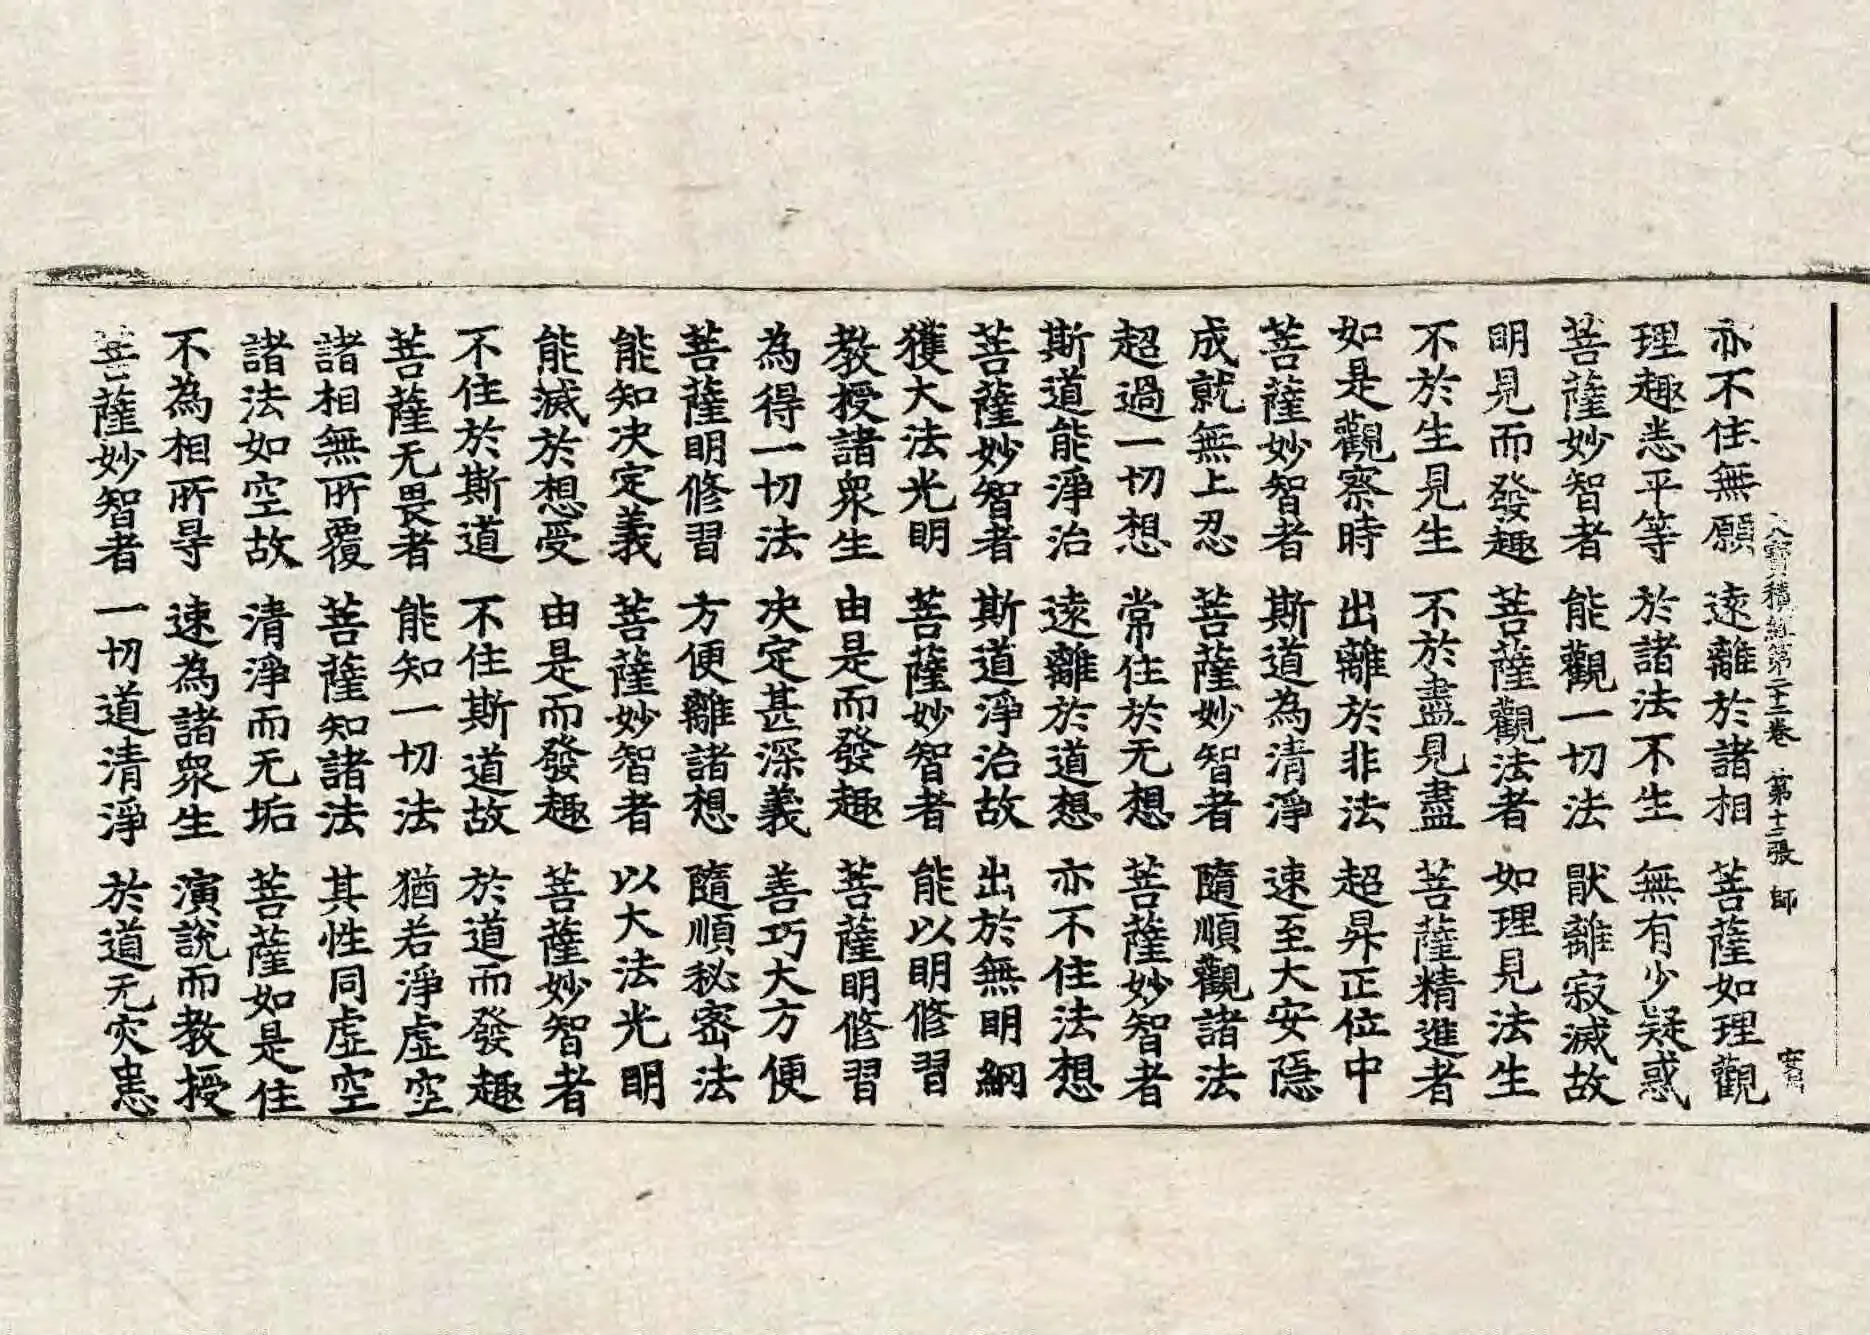 大寶積經第二十二卷 第十二張 師
亦不住無願 遠離於諸相 菩薩如理觀
理趣悉平等 於諸法不生 無有少疑惑
菩薩妙智者 能觀一切法 猒離寂滅故
明見而發趣 菩薩觀法者 如理見法生
不於生見生 不於盡見盡 菩薩精進者
如是觀察時 出離於非法 超昇正位中
菩薩妙智者 斯道為清淨 速至大安隱
成就無上忍 菩薩妙智者 隨順觀諸法
超過一切想 常住於无想 菩薩妙智者
斯道能淨治 遠離於道想 亦不住法想
菩薩妙智者 斯道淨治故 出於無明網
獲大法光明 菩薩妙智者 能以明修習
教授諸衆生 由是而發趣 菩薩明修習
為得一切法 決定甚深義 善巧大方便
菩薩明修習 方便離諸想 隨順秘密法
能知決定義 菩薩妙智者 以大法光明
能滅於想受 由是而發趣 菩薩妙智者
不住於斯道 不住斯道故 於道而發趣
菩薩无畏者 能知一切法 猶若淨虛空
諸相無所覆 菩薩知諸法 其性同虛空
諸法如空故 清淨而无垢 菩薩如是住
不為相所㝵 速為諸衆生 演說而教授
菩薩妙智者 一切道清淨 於道无灾患